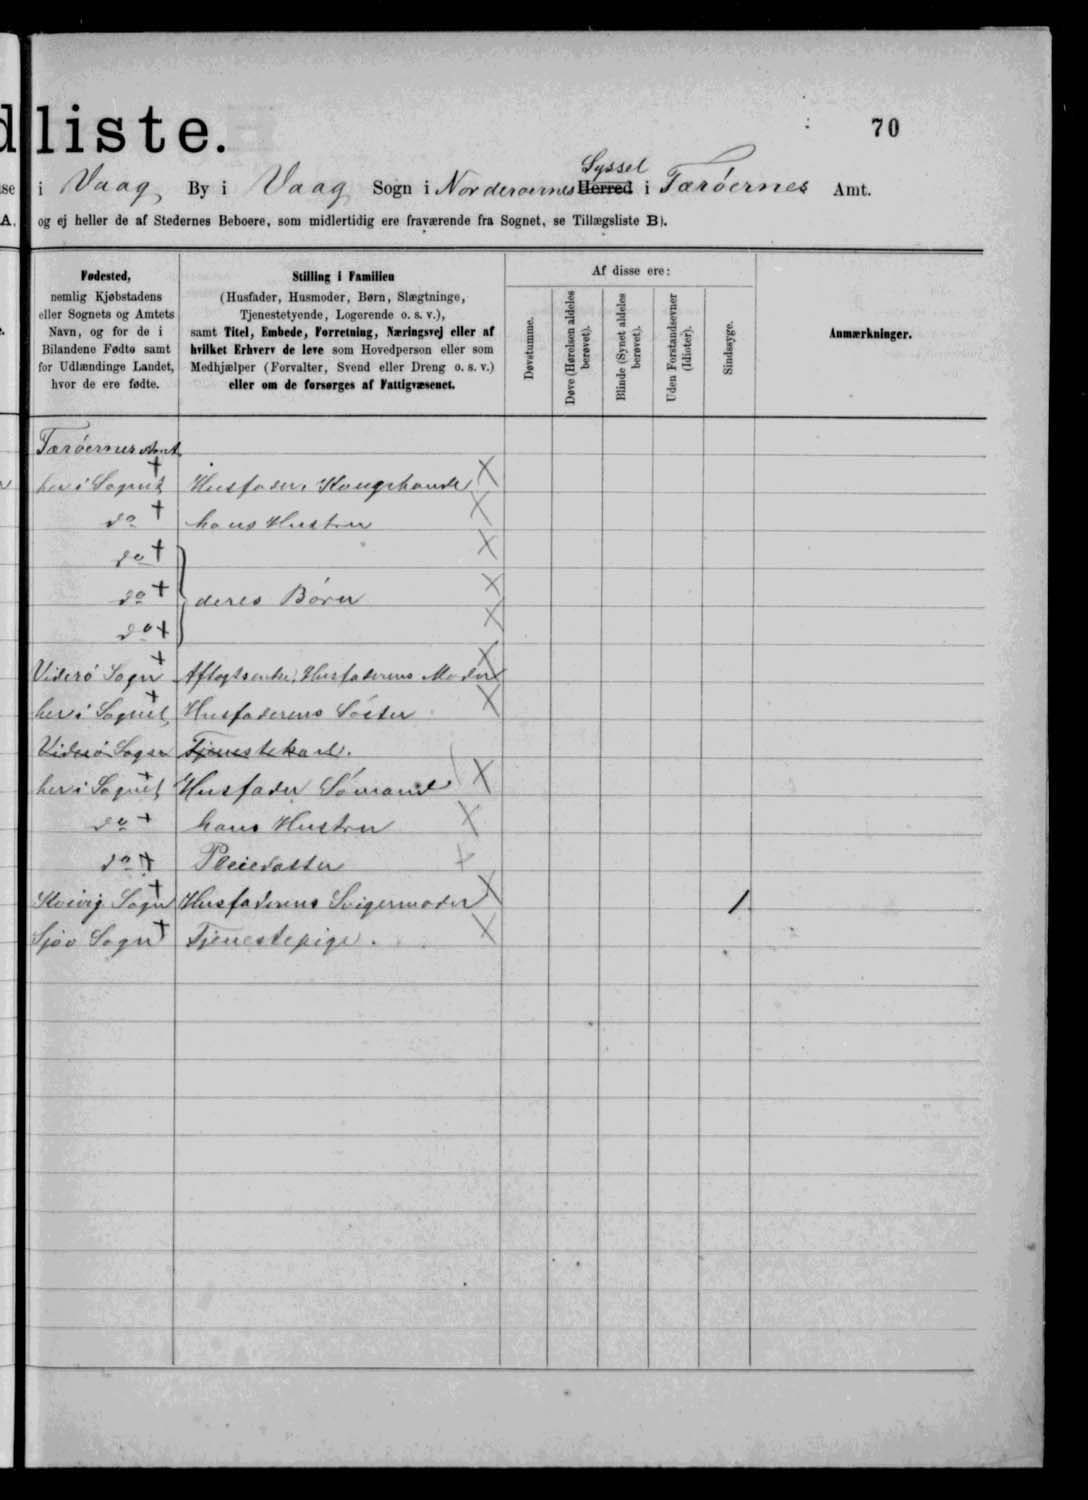 dliste.
70
Syssel
i Vaag By i Vaag Sogn i Norderoernes Herred i Færöernes Amt.
og ej heller de af Stedernes Beboere, som midlertidig ere fraværende fra Sognet, se Tillægsliste B).
Fødested,
nemlig Kjøbstadens
eller Sognets og Amtets
Navn, og for de i
Bilandene Fødte samt
for Udlændinge Landet,
hvor de ere fødte.
Stilling i Familien
(Husfader, Husmoder, Børn, Slægtninge,
Tjenestetyende, Logerende o. s. v.),
samt Titel, Embede, Forretning, Næringsvej eller af
hvilket Erhverv de leve som Hovedperson eller som
Medhjælper (Forvalter, Svend eller Dreng o. s. v.)
eller om de forsørges af Fattigvæsenet.
Af disse ere:
Døvstumme.
Døve (Hørelsen aldeles
berøvet).
Blinde (Synet aldeles
berøvet).
Uden Forstandsevner
(Idioter).
Sindssyge.
Anmærkninger.
Færöernes Amt
her i Sognet Husfader,
do hans Hustru
do
do deres Börn
do
Viderö Sogn Aftægtsenke, Husfaderens Moder
her i Sognet Husfaderens Söster
Viderö Sogn Tjenestekarl.
her i Sognet Husfader Sömand
do hans Hustru
do Pleiedatter
Kvivig Sogn Husfaderens Svigermoder 1
Sjov Sogn Tjenestepige.